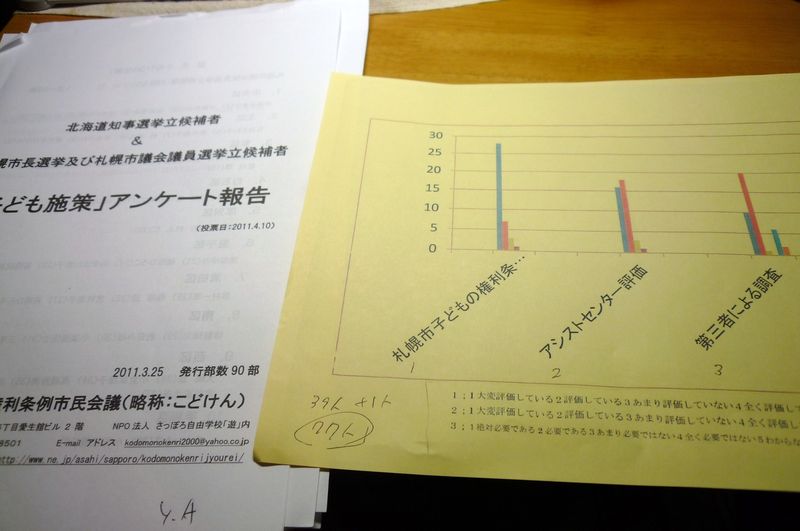 北海道知事選挙立候補者
&
幌市長選挙及び札幌市議会議員選挙立候補者
ども施策」アンケート報告
(投票日:2011.4.10)
2011.3.25 発行部数 90 部
権利条例市民会議(略称:こどけん)
5丁目愛生舘ビル 2 階 NPO 法人 さっぽろ自由学校「遊」内
8501 E-mail アドレス kodomonokenri2000@yahoo.co.jp
http://www.ne.jp/asahi/sapporo/kodomonokenrijyourei/
Y.A
30
25
20
15
10
5
0
札幌市子どもの権利条…
アシストセンター評価
第三者による調査
1
2
3
1;1大変評価している2評価している3あまり評価していない4全く評価し
2;1大変評価している2評価している3あまり評価していない4全く評価して
3;1絶対必要である2必要である3あまり必要ではない4全く必要ではない5わからな